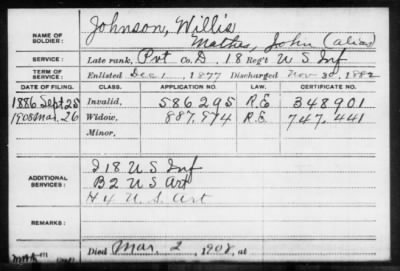 NAME OF SOLDIER: Johnson, Willis
Mathes, John (alias)
SERVICE: Late rank, Pvt Co. D, 18 Reg't U S Inf
TERM OF SERVICE: Enlisted Dec 1, 1877 Discharged Nov 30, 1882
DATE OF FILING. CLASS. APPLICATION NO. LAW. CERTIFICATE NO.
1886 Sept 25 Invalid, 586295 R.E 348901
1908 Mar. 26 Widow, 887,874 R.E 747,441
Minor,
ADDITIONAL SERVICES: I 18 U S Inf
B 2 U S Art
H 4 U. S. Art
REMARKS:
Died Mar. 2, 1908, at